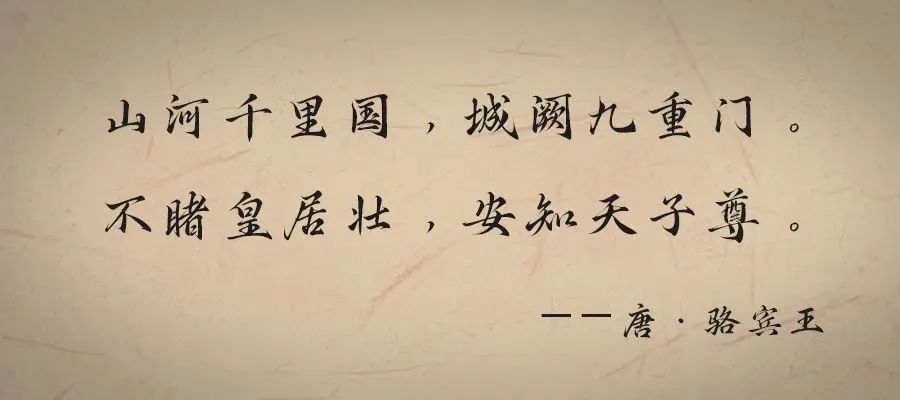 山河千里国，城阙九重门。
不睹皇居壮，安知天子尊。
——唐·骆宾王